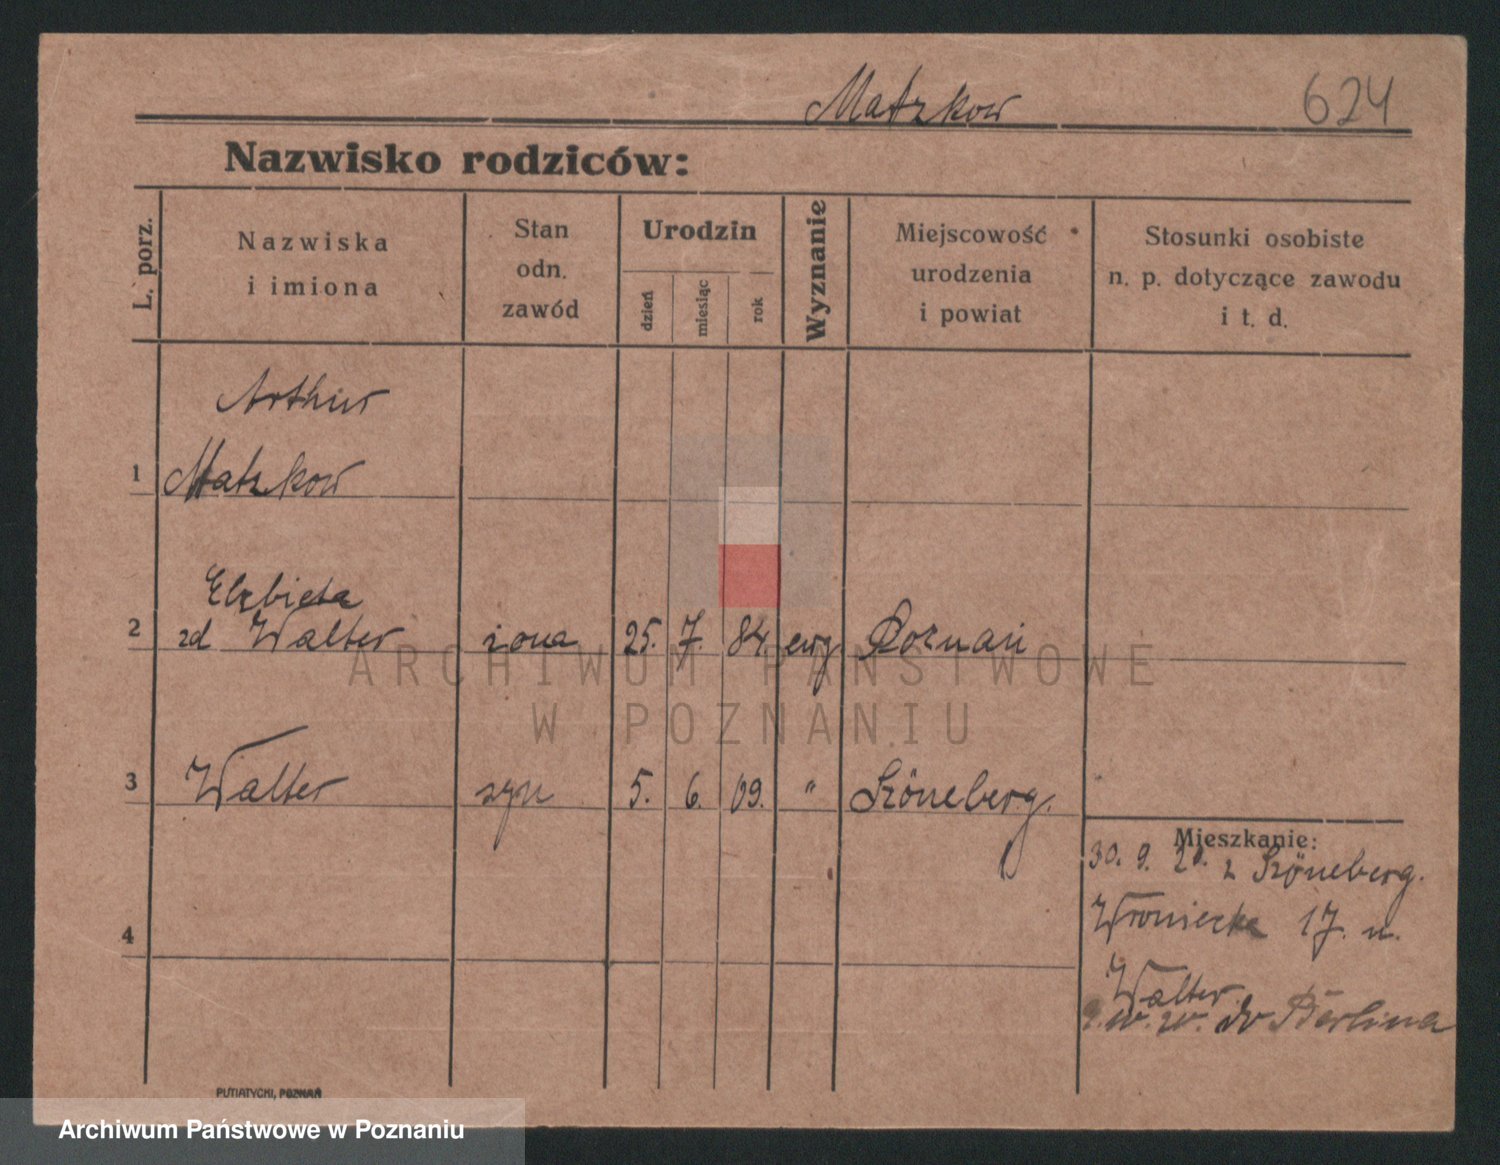 Matzkow 624
Nazwisko rodziców:
L. porz.
Nazwiska
i imiona
Stan
odn.
zawód
Urodzin
dzień
miesiąc
rok
Wyznanie
Miejscowość
urodzenia
i powiat
Stosunki osobiste
n. p. dotyczące zawodu
i t. d.
Arthur
1 Matzkow
Elzbieta
2 zd Walter żona 25. 7. 84. ewg Poznań
3 Walter syn 5. 6. 09. " Szöneberg.
Mieszkanie:
30. 9. 20. z Szöneberg.
Wroniecka 17. u.
Walter.
do Berlina
4
PUTIATYCKI, POZNAŃ
ARCHIWUM PAŃSTWOWE
W POZNANIU
Archiwum Państwowe w Poznaniu